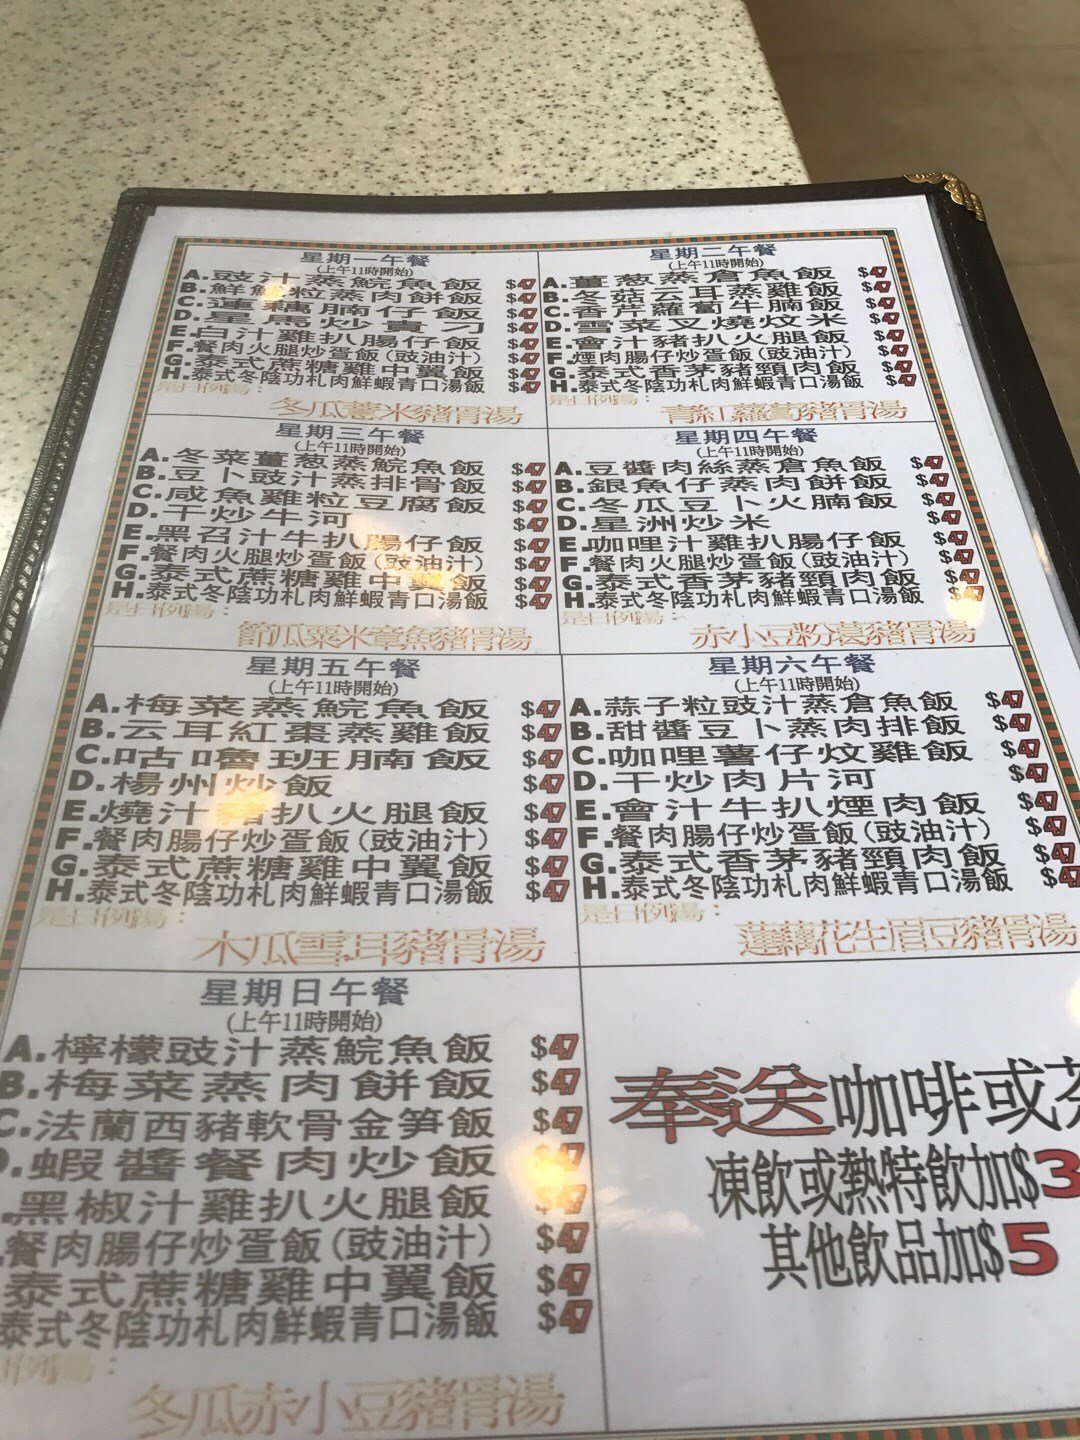 星期一午餐
(上午11時開始)
A.豉汁蒸鯇魚飯 $47
B.鮮魷粒蒸肉餅飯 $47
C.蓮藕腩仔飯 $47
D.星馬炒貴刁 $47
E.白汁雞扒腸仔飯 $47
F.餐肉火腿炒蛋飯(豉油汁) $47
G.泰式蔗糖雞中翼飯 $47
H.泰式冬陰功札肉鮮蝦青口湯飯 $47
是日例湯:
冬瓜薏米豬骨湯
星期二午餐
(上午11時開始)
A.薑葱蒸倉魚飯 $47
B.冬菇云耳蒸雞飯 $47
C.香芹蘿蔔牛腩飯 $47
D.雪菜叉燒炆米 $47
E.會汁豬扒火腿飯 $47
F.煙肉腸仔炒蛋飯(豉油汁) $47
G.泰式香茅豬頸肉飯 $47
H.泰式冬陰功札肉鮮蝦青口湯飯 $47
是日例湯:
青紅蘿蔔豬骨湯
星期三午餐
(上午11時開始)
A.冬菜薑葱蒸鯇魚飯 $47
B.豆卜豉汁蒸排骨飯 $47
C.咸魚雞粒豆腐飯 $47
D.干炒牛河 $47
E.黑召汁牛扒腸仔飯 $47
F.餐肉火腿炒蛋飯(豉油汁) $47
G.泰式蔗糖雞中翼飯 $47
H.泰式冬陰功札肉鮮蝦青口湯飯 $47
是日例湯:
節瓜粟米章魚豬骨湯
星期四午餐
(上午11時開始)
A.豆醬肉絲蒸倉魚飯 $47
B.銀魚仔蒸肉餅飯 $47
C.冬瓜豆卜火腩飯 $47
D.星洲炒米 $47
E.咖哩汁雞扒腸仔飯 $47
F.餐肉火腿炒蛋飯(豉油汁) $47
G.泰式香茅豬頸肉飯 $47
H.泰式冬陰功札肉鮮蝦青口湯飯 $47
是日例湯:
赤小豆粉葛豬骨湯
星期五午餐
(上午11時開始)
A.梅菜蒸鯇魚飯 $47
B.云耳紅棗蒸雞飯 $47
C.咕嚕班腩飯 $47
D.楊州炒飯 $47
E.燒汁豬扒火腿飯 $47
F.餐肉腸仔炒蛋飯(豉油汁) $47
G.泰式蔗糖雞中翼飯 $47
H.泰式冬陰功札肉鮮蝦青口湯飯 $47
是日例湯:
木瓜雪耳豬骨湯
星期六午餐
(上午11時開始)
A.蒜子粒豉汁蒸倉魚飯 $47
B.甜醬豆卜蒸肉排飯 $47
C.咖哩薯仔炆雞飯 $47
D.干炒肉片河 $47
E.會汁牛扒煙肉飯 $47
F.餐肉腸仔炒蛋飯(豉油汁) $47
G.泰式香茅豬頸肉飯 $47
H.泰式冬陰功札肉鮮蝦青口湯飯 $47
是日例湯:
蓮藕花生眉豆豬骨湯
星期日午餐
(上午11時開始)
A.檸檬豉汁蒸鯇魚飯 $47
B.梅菜蒸肉餅飯 $47
C.法蘭西豬軟骨金笋飯 $47
D.蝦醬餐肉炒飯 $47
.黑椒汁雞扒火腿飯 $47
.餐肉腸仔炒蛋飯(豉油汁) $47
泰式蔗糖雞中翼飯 $47
泰式冬陰功札肉鮮蝦青口湯飯 $47
是日例湯:
冬瓜赤小豆豬骨湯
奉送咖啡或茶
凍飲或熱特飲加$3
其他飲品加$5